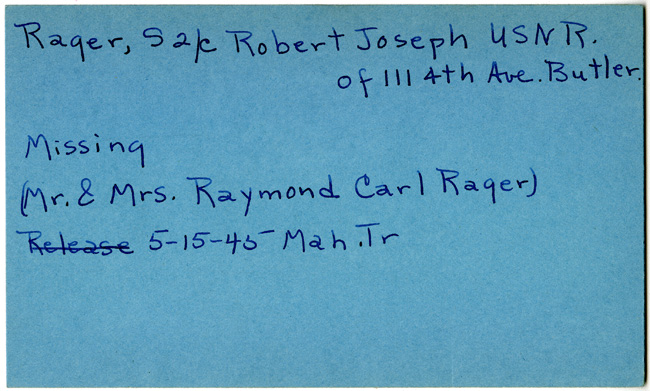 Rager, S 2/c Robert Joseph USNR.
of 111 4th Ave. Butler.
Missing
(Mr. & Mrs. Raymond Carl Rager)
Release 5-15-45 Mah. Tr